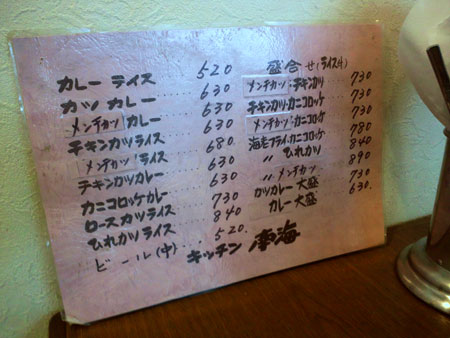 カレーライス 520
カツカレー 630
メンチカツカレー 630
チキンカツライス 630
メンチカツ・ライス 680
チキンカツカレー 630
カニコロッケカレー
ロースカツライス 730
ひれカツライス 840
ビール(中) 520.
盛合せ(ライス付)
メンチカツ・チキンカツ 730
チキンカツ・カニコロッケ 730
メンチカツ・カニコロッケ 730
海老フライ・カニコロッケ 780
〃 ひれカツ 840
〃 メンチカツ 890
カツカレー大盛 730
カレー大盛 630.
キッチン南海